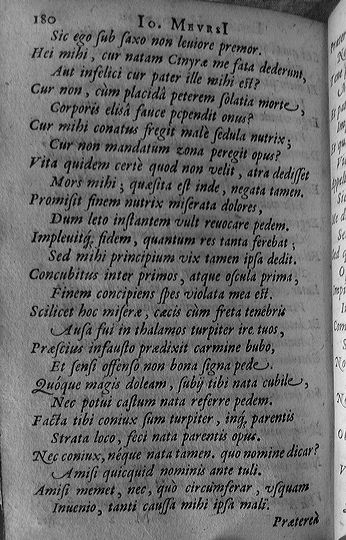 180 IO. MEVRSI
Sic ego sub saxo non leviore premor.
Hei mihi, cur natam Cinyræ me fata dederunt,
Aut infelici cur pater ille mihi est?
Cur non, cùm placidâ peterem solatia morte,
Corporis elisâ fauce pependit onus?
Cur mihi conatus fregit malè sedula nutrix;
Cur non mandatum zona peregit opus?
Vita quidem certè quod non velit, atra dedisset
Mors mihi; quæsita est inde, negata tamen.
Promisit finem nutrix miserata dolores,
Dum leto instantem vult revocare pedem.
Impleuitq́; fidem, quantum res tanta ferebat;
Sed mihi principium vix tamen ipsa dedit.
Concubitus inter primos, atque oscula prima,
Finem concipiens spes violata mea est.
Scilicet hoc miseræ, cæcis cùm freta tenebris
Ausa fui in thalamos turpiter ire tuos,
Præscius infausto prædixit carmine bubo,
Et sensi offenso non bona signa pede.
Quóque magis doleam, subij tibi nata cubile,
Nec potui castum nata referre pedem.
Facta tibi coniux sum turpiter, inq́; parentis
Strata loco, feci nata parentis opus.
Nec coniux, neque nata tamen. quo nomine dicar?
Amisi quicquid nominis ante tuli.
Amisi memet, nec, quò circumferar, vsquam
Inuenio, tanti caussa mihi ipsa mali.
Præterea